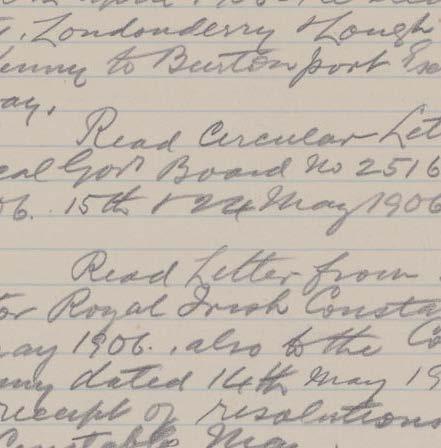 t. Londonderry & Lough
enny to Burtonport
ay.
Read Circular Let
cal Govt Board No 2516
06. 15th & 24 May 1906
Read Letter from
or Royal Irish Consta
ay 1906. also to the Co
nny dated 14th May 19
receipt of resolutions
Constable